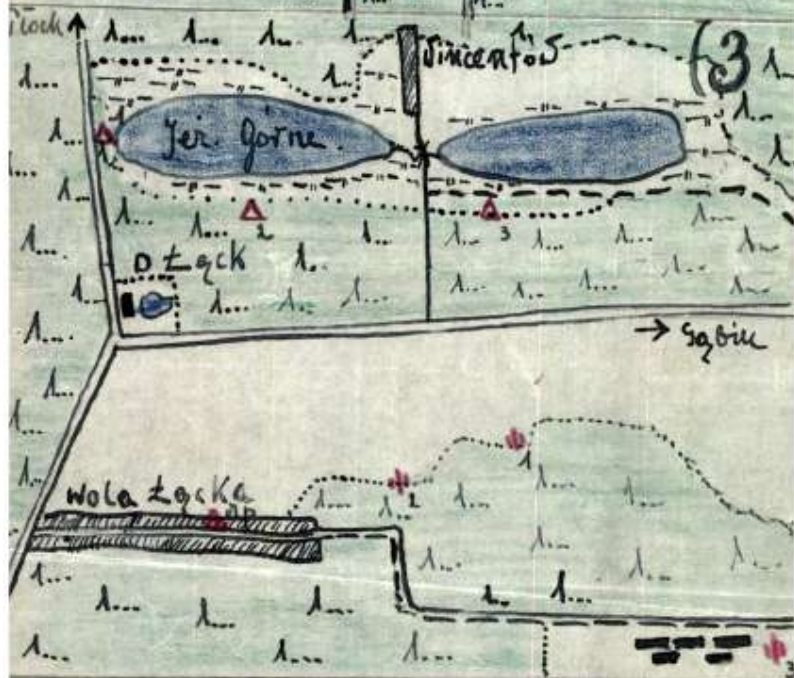 Wincentów
(3
Jez. Górne
2
3
D Łąck
→ Gąbin
1
2
Wola Łącka
3